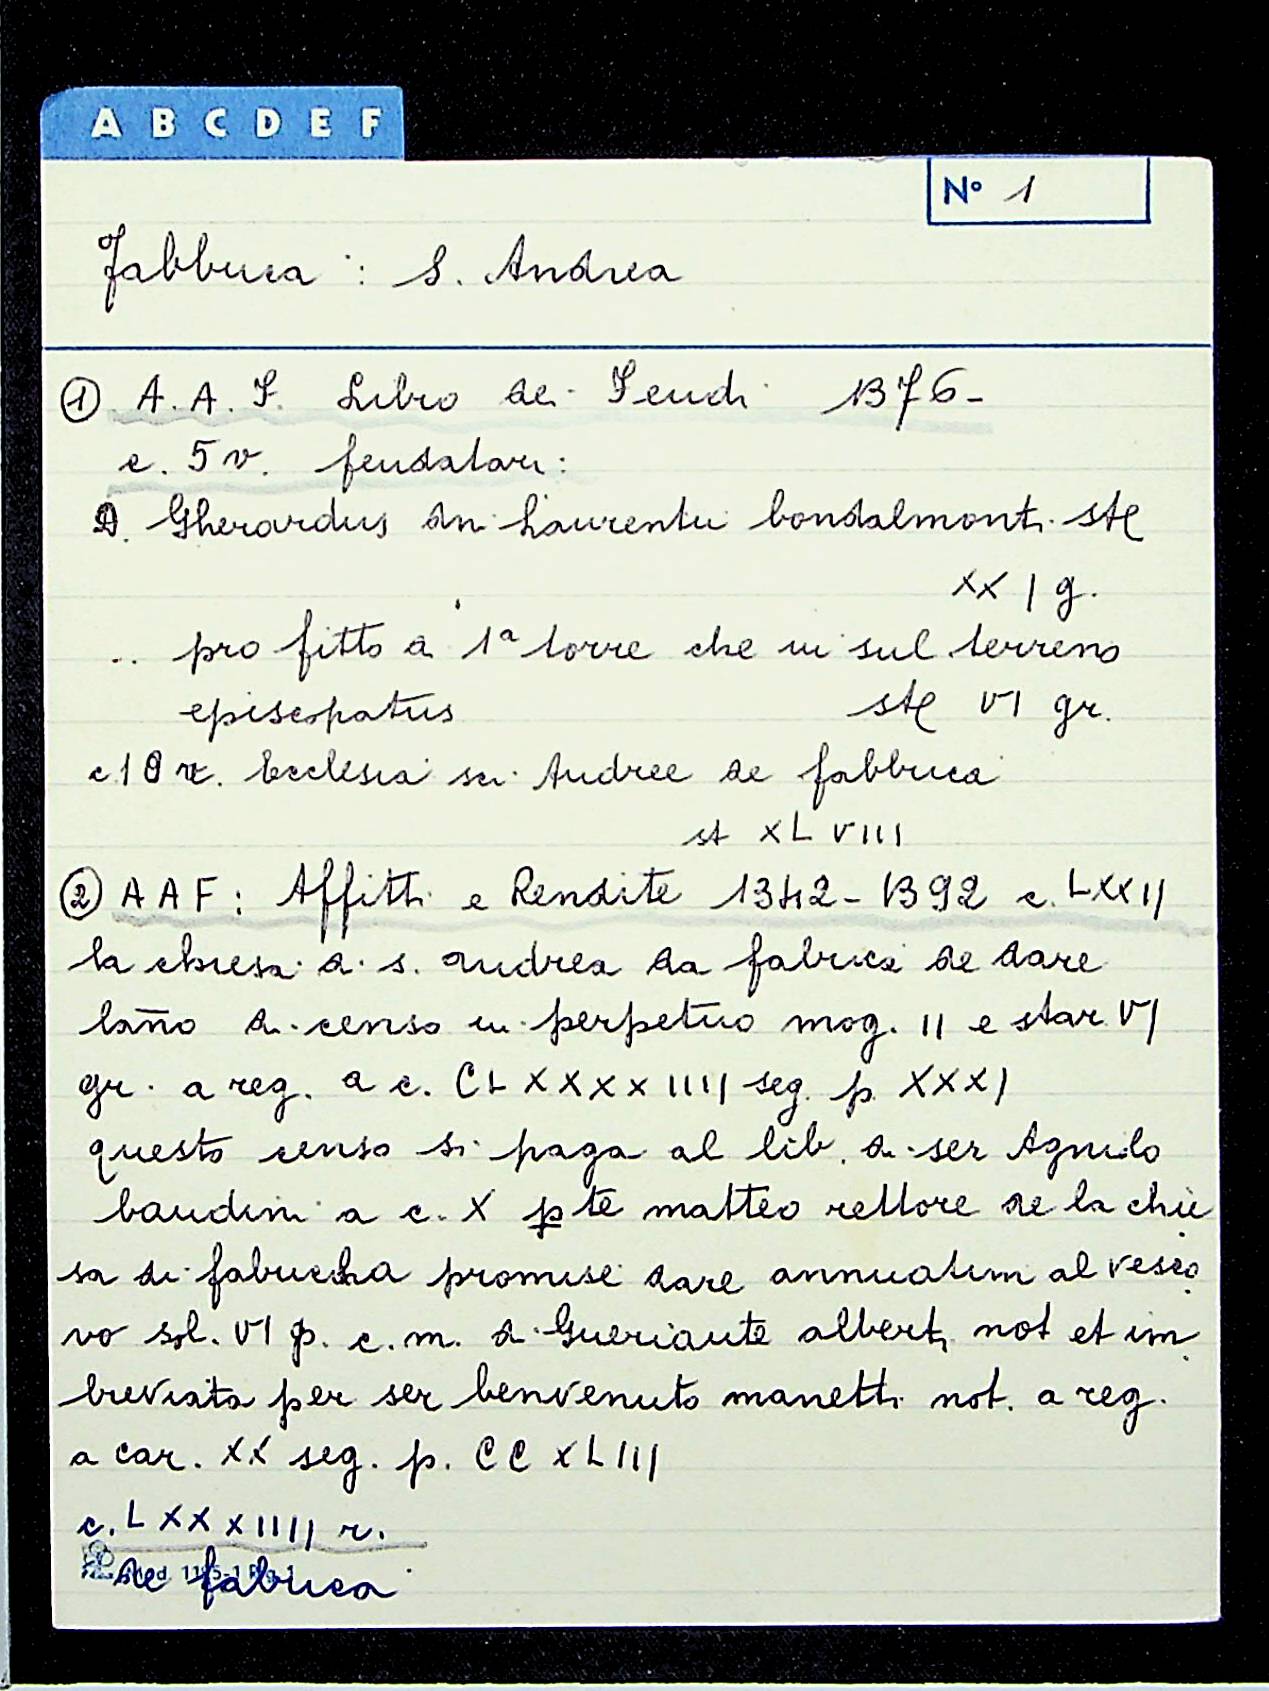 A B C D E F
N° 1
Fabbrica : S. Andrea
① A. A. F. Libro dei Feudi 1376-
c. 5 v. feudatari :
D. Gherardus dni Laurentii bondalmonti ste
XX I g.
.. pro fitto di 1ª torre che in sul terreno
episcopatus ste VI gr.
c 18 v. Ecclesia sci Andree de fabbrica
st XL VIII
② A A F : Affitti e Rendite 1342-1392 c. LXXII
la chiesa di s. andrea da fabrica de dare
lano di censo in perpetuo mog. II e star VI
gr. a reg. a c. CLXXXXIIII seg. p. XXXI
questo censo si paga al lib. di ser Agnilo
baudini a c. X pte matteo rettore de la chie
sa di fabricha promise dare annuatim al vesco
vo sol. VI p. c. m. di Gueriante alberti not et im
breviata per ser benvenuto manetti not. a reg.
a car. XX seg. p. CC XLIII
c. LXXXIIII r.
de fabrica